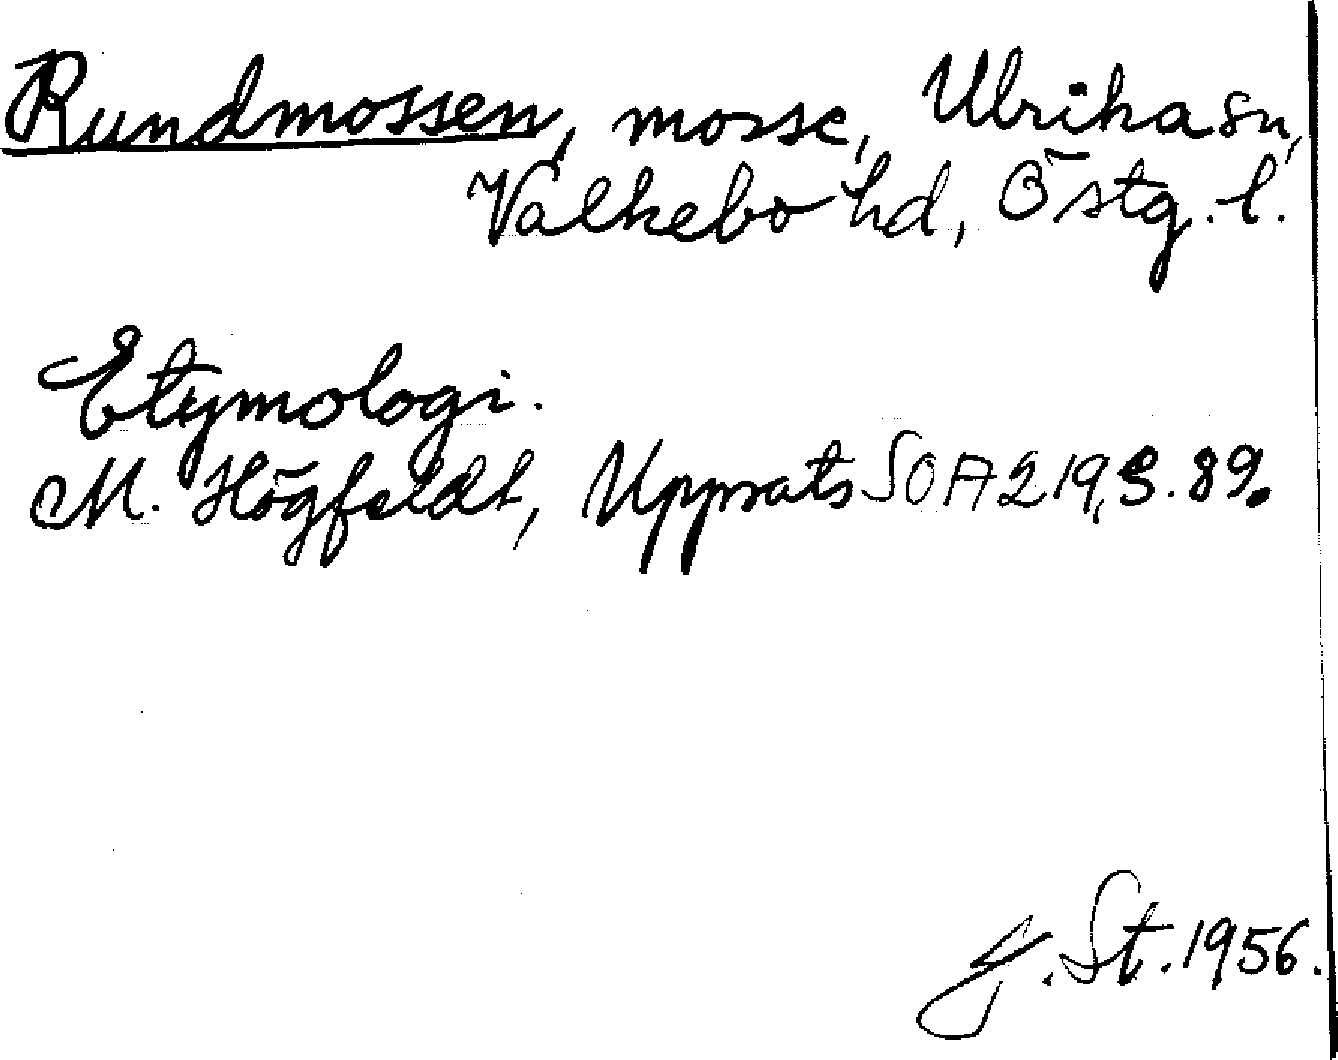 Rundmossen, mosse, Ulrika sn,
Valkebo hd, Östg. l.
Etymologi.
M. Högfeldt, Uppsats SOA 219, S. 89.
J. St. 1956.